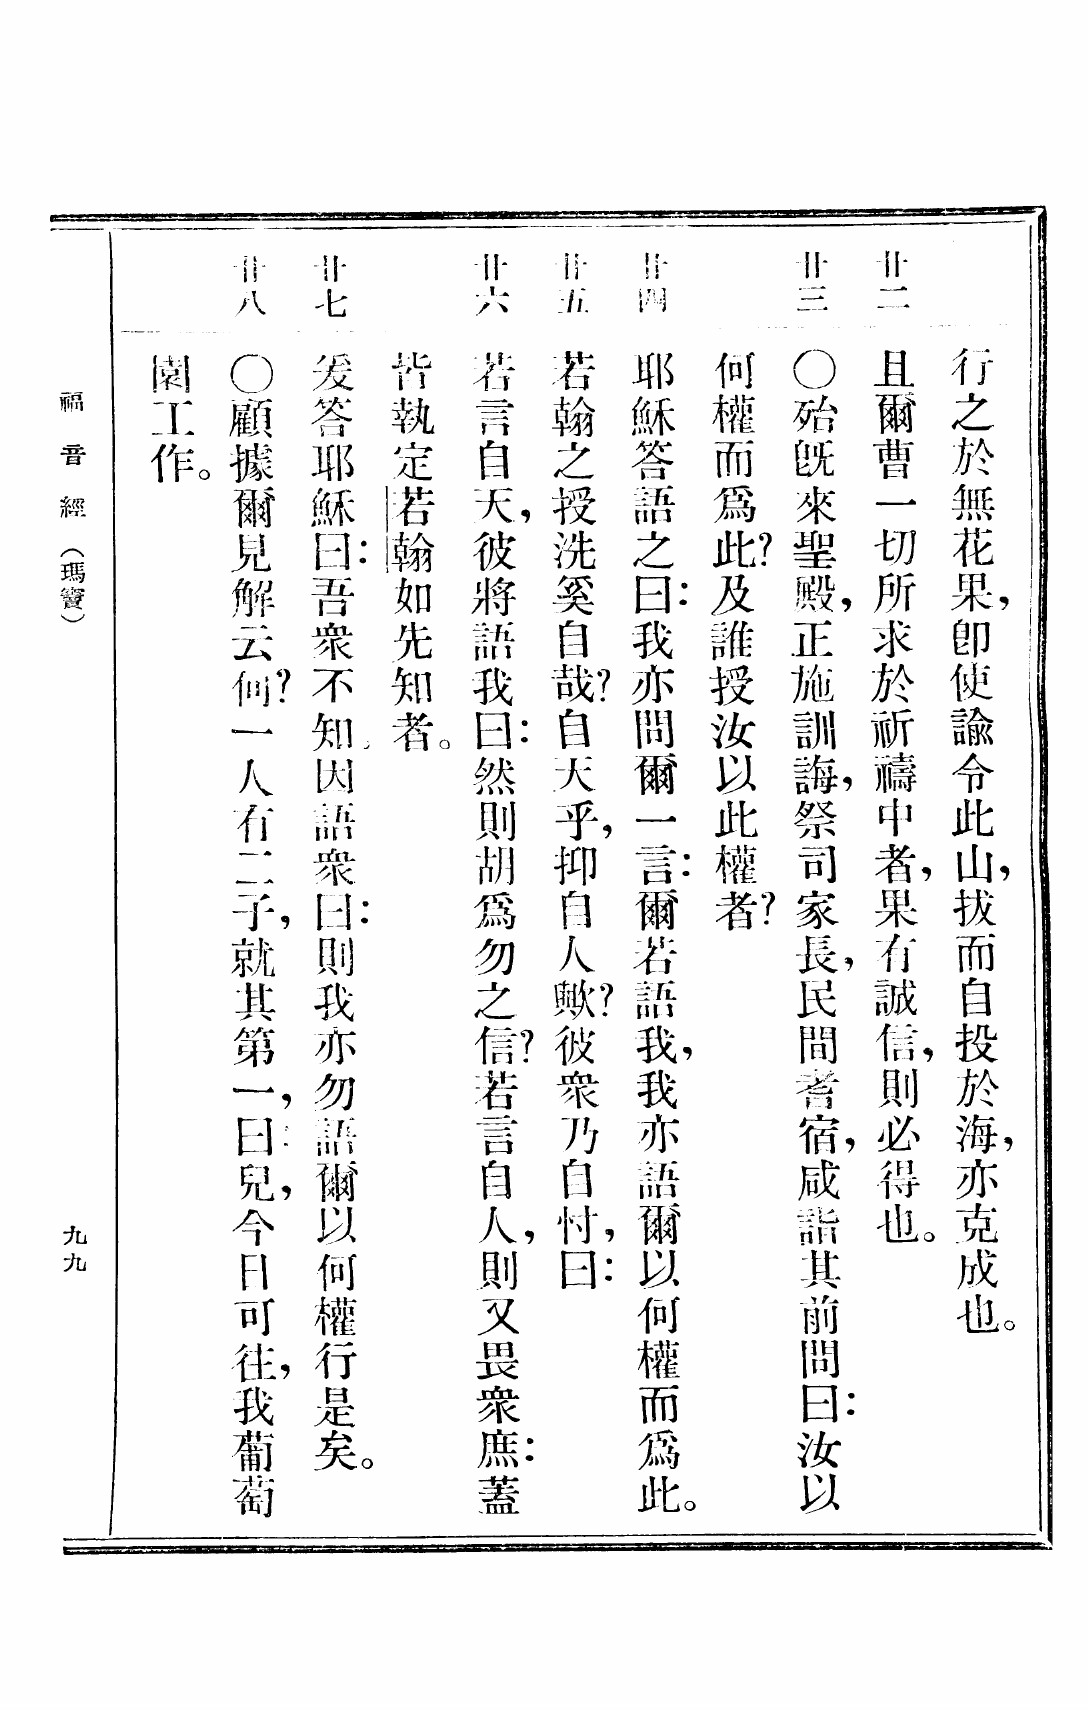 行之於無花果，卽使諭令此山，拔而自投於海，亦克成也。
廿二 且爾曹一切所求於祈禱中者，果有誠信，則必得也。
廿三 〇殆旣來聖殿，正施訓誨，祭司家長，民間耆宿，咸詣其前問曰：汝以
何權而爲此？及誰授汝以此權者？
廿四 耶穌答語之曰：我亦問爾一言：爾若語我，我亦語爾以何權而爲此。
廿五 若翰之授洗奚自哉？自天乎，抑自人歟？彼衆乃自忖，曰：
廿六 若言自天，彼將語我曰：然則胡爲勿之信？若言自人，則又畏衆庶：蓋
皆執定若翰如先知者。
廿七 爰答耶穌曰：吾衆不知。因語衆曰：則我亦勿語爾以何權行是矣。
廿八 〇顧據爾見解云何？一人有二子，就其第一，曰：兒，今日可往，我葡萄
園工作。
福音經（瑪竇）
九九